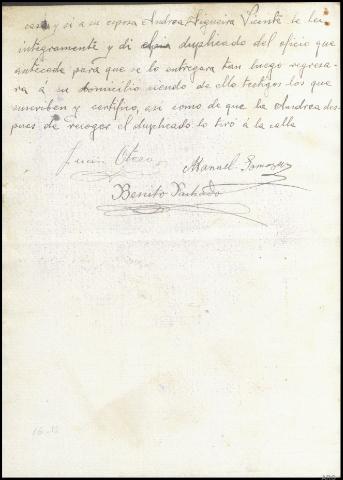 casa y si a su esposa Andrea Figueira Vicente se leí
integramente y di duplicado del oficio que
antecede para que se lo entregara tan luego regresa-
ra á su domicilio siendo de ello testigos los que
suscriben y certifico, asi como de que la Andrea des-
pues de recoger el duplicado lo tiró á la calle
Otero
Manuel
Benito Machado
16-12